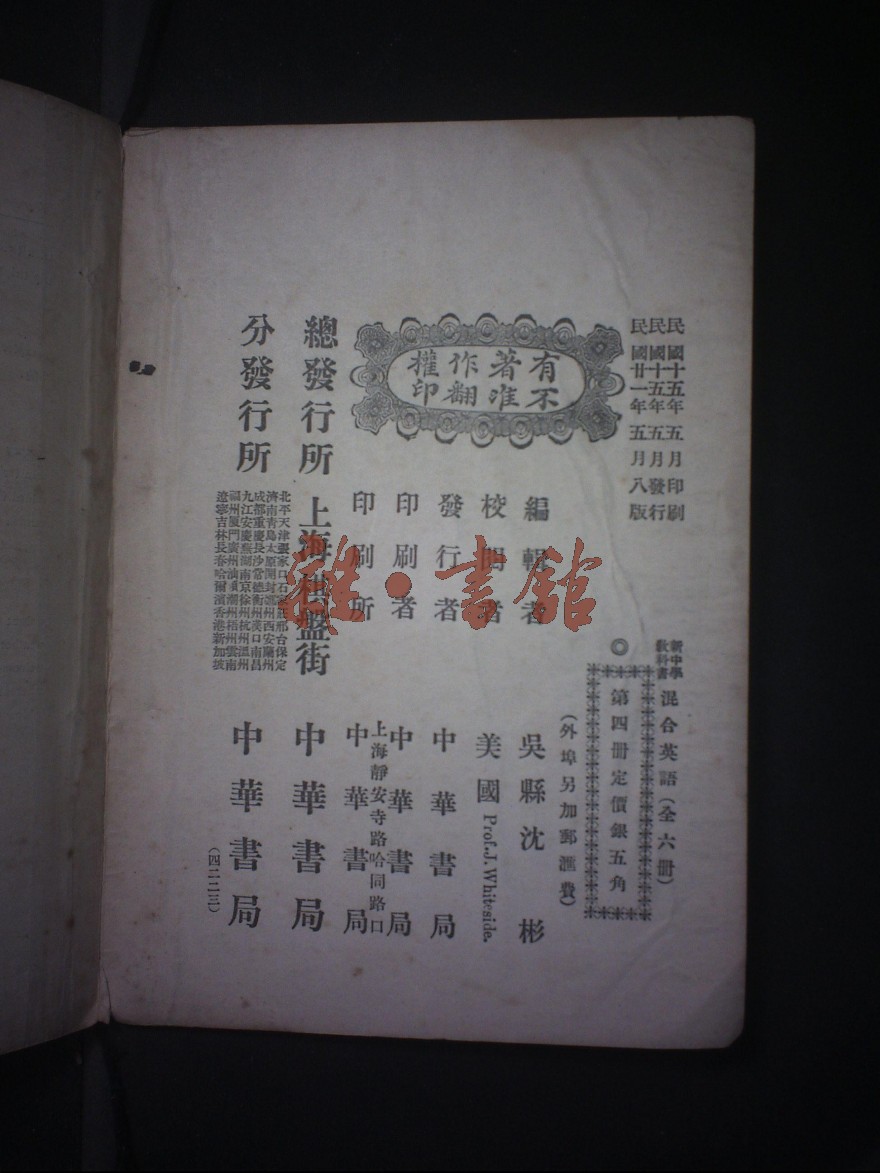 民國十五年五月印刷
民國十五年五月發行
民國廿一年五月八版
新中學
教科書
混合英語(全六冊)
◎第四冊定價銀五角
(外埠另加郵匯費)
有著作權
不准翻印
編輯者 吳縣沈彬
校閱者 美國Prof. J. Whiteside.
發行者 中華書局
印刷者 中華書局
印刷所 上海靜安寺路哈同路口
中華書局
總發行所 上海棋盤街 中華書局
分發行所
北平天津張家口石家莊邢台保定
濟南青島太原開封鄭州西安蘭州
成都重慶長沙常德衡州漢口南昌
九江安慶蕪湖南京徐州杭州溫州
福州廈門廣州汕頭潮州梧州雲南
遼寧吉林長春哈爾濱香港新加坡
中華書局
(四二二三)
雜·書館